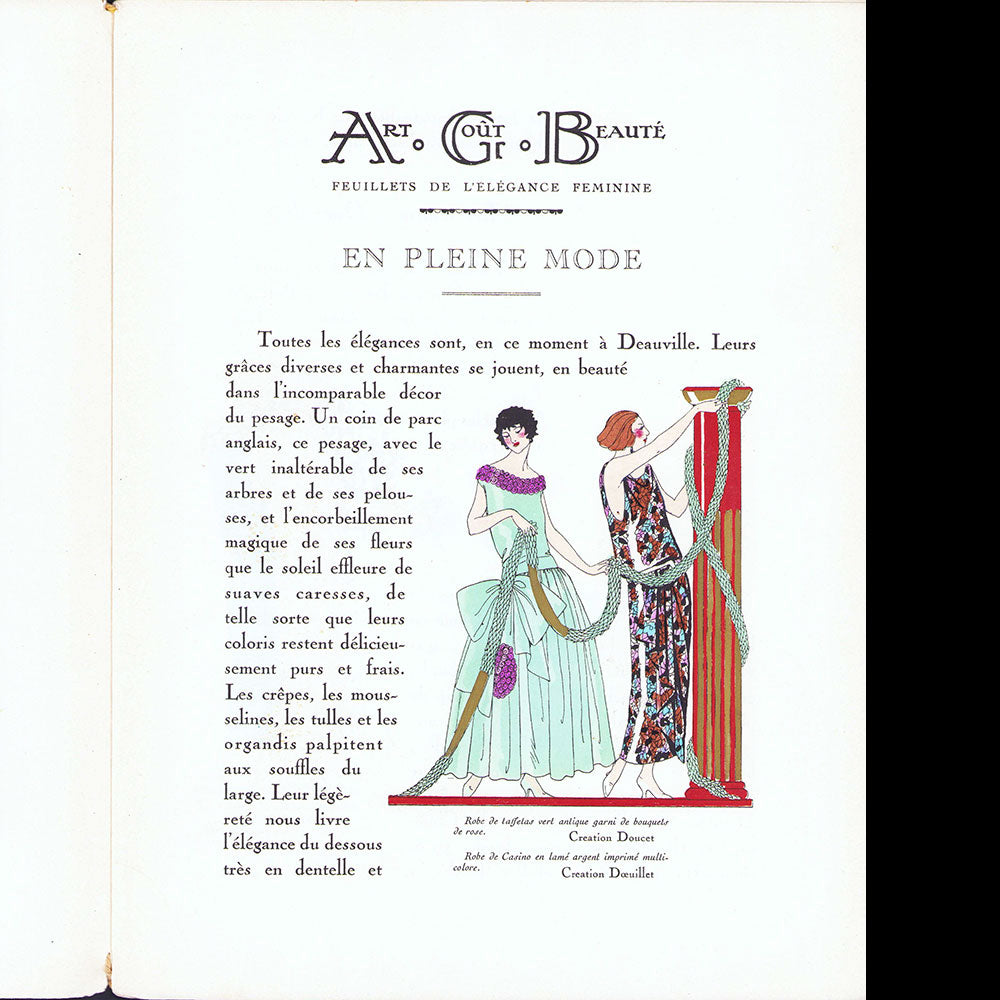 ART · GOÛT · BEAUTÉ
FEUILLETS DE L'ELÉGANCE FEMININE
EN PLEINE MODE
Toutes les élégances sont, en ce moment à Deauville. Leurs
grâces diverses et charmantes se jouent, en beauté
dans l'incomparable décor
du pesage. Un coin de parc
anglais, ce pesage, avec le
vert inaltérable de ses
arbres et de ses pelou-
ses, et l'encorbeillement
magique de ses fleurs
que le soleil effleure de
suaves caresses, de
telle sorte que leurs
coloris restent délicieu-
sement purs et frais.
Les crêpes, les mous-
selines, les tulles et les
organdis palpitent
aux souffles du
large. Leur légè-
reté nous livre
l'élégance du dessous
très en dentelle et
Robe de taffetas vert antique garni de bouquets
de rose.
Creation Doucet
Robe de Casino en lamé argent imprimé multi-
colore.
Creation Dœuillet